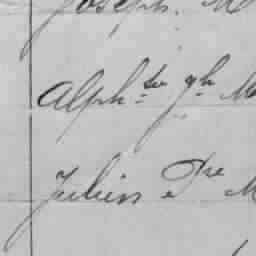 Joseph. M
Alph.se gh M
Julien Pre M